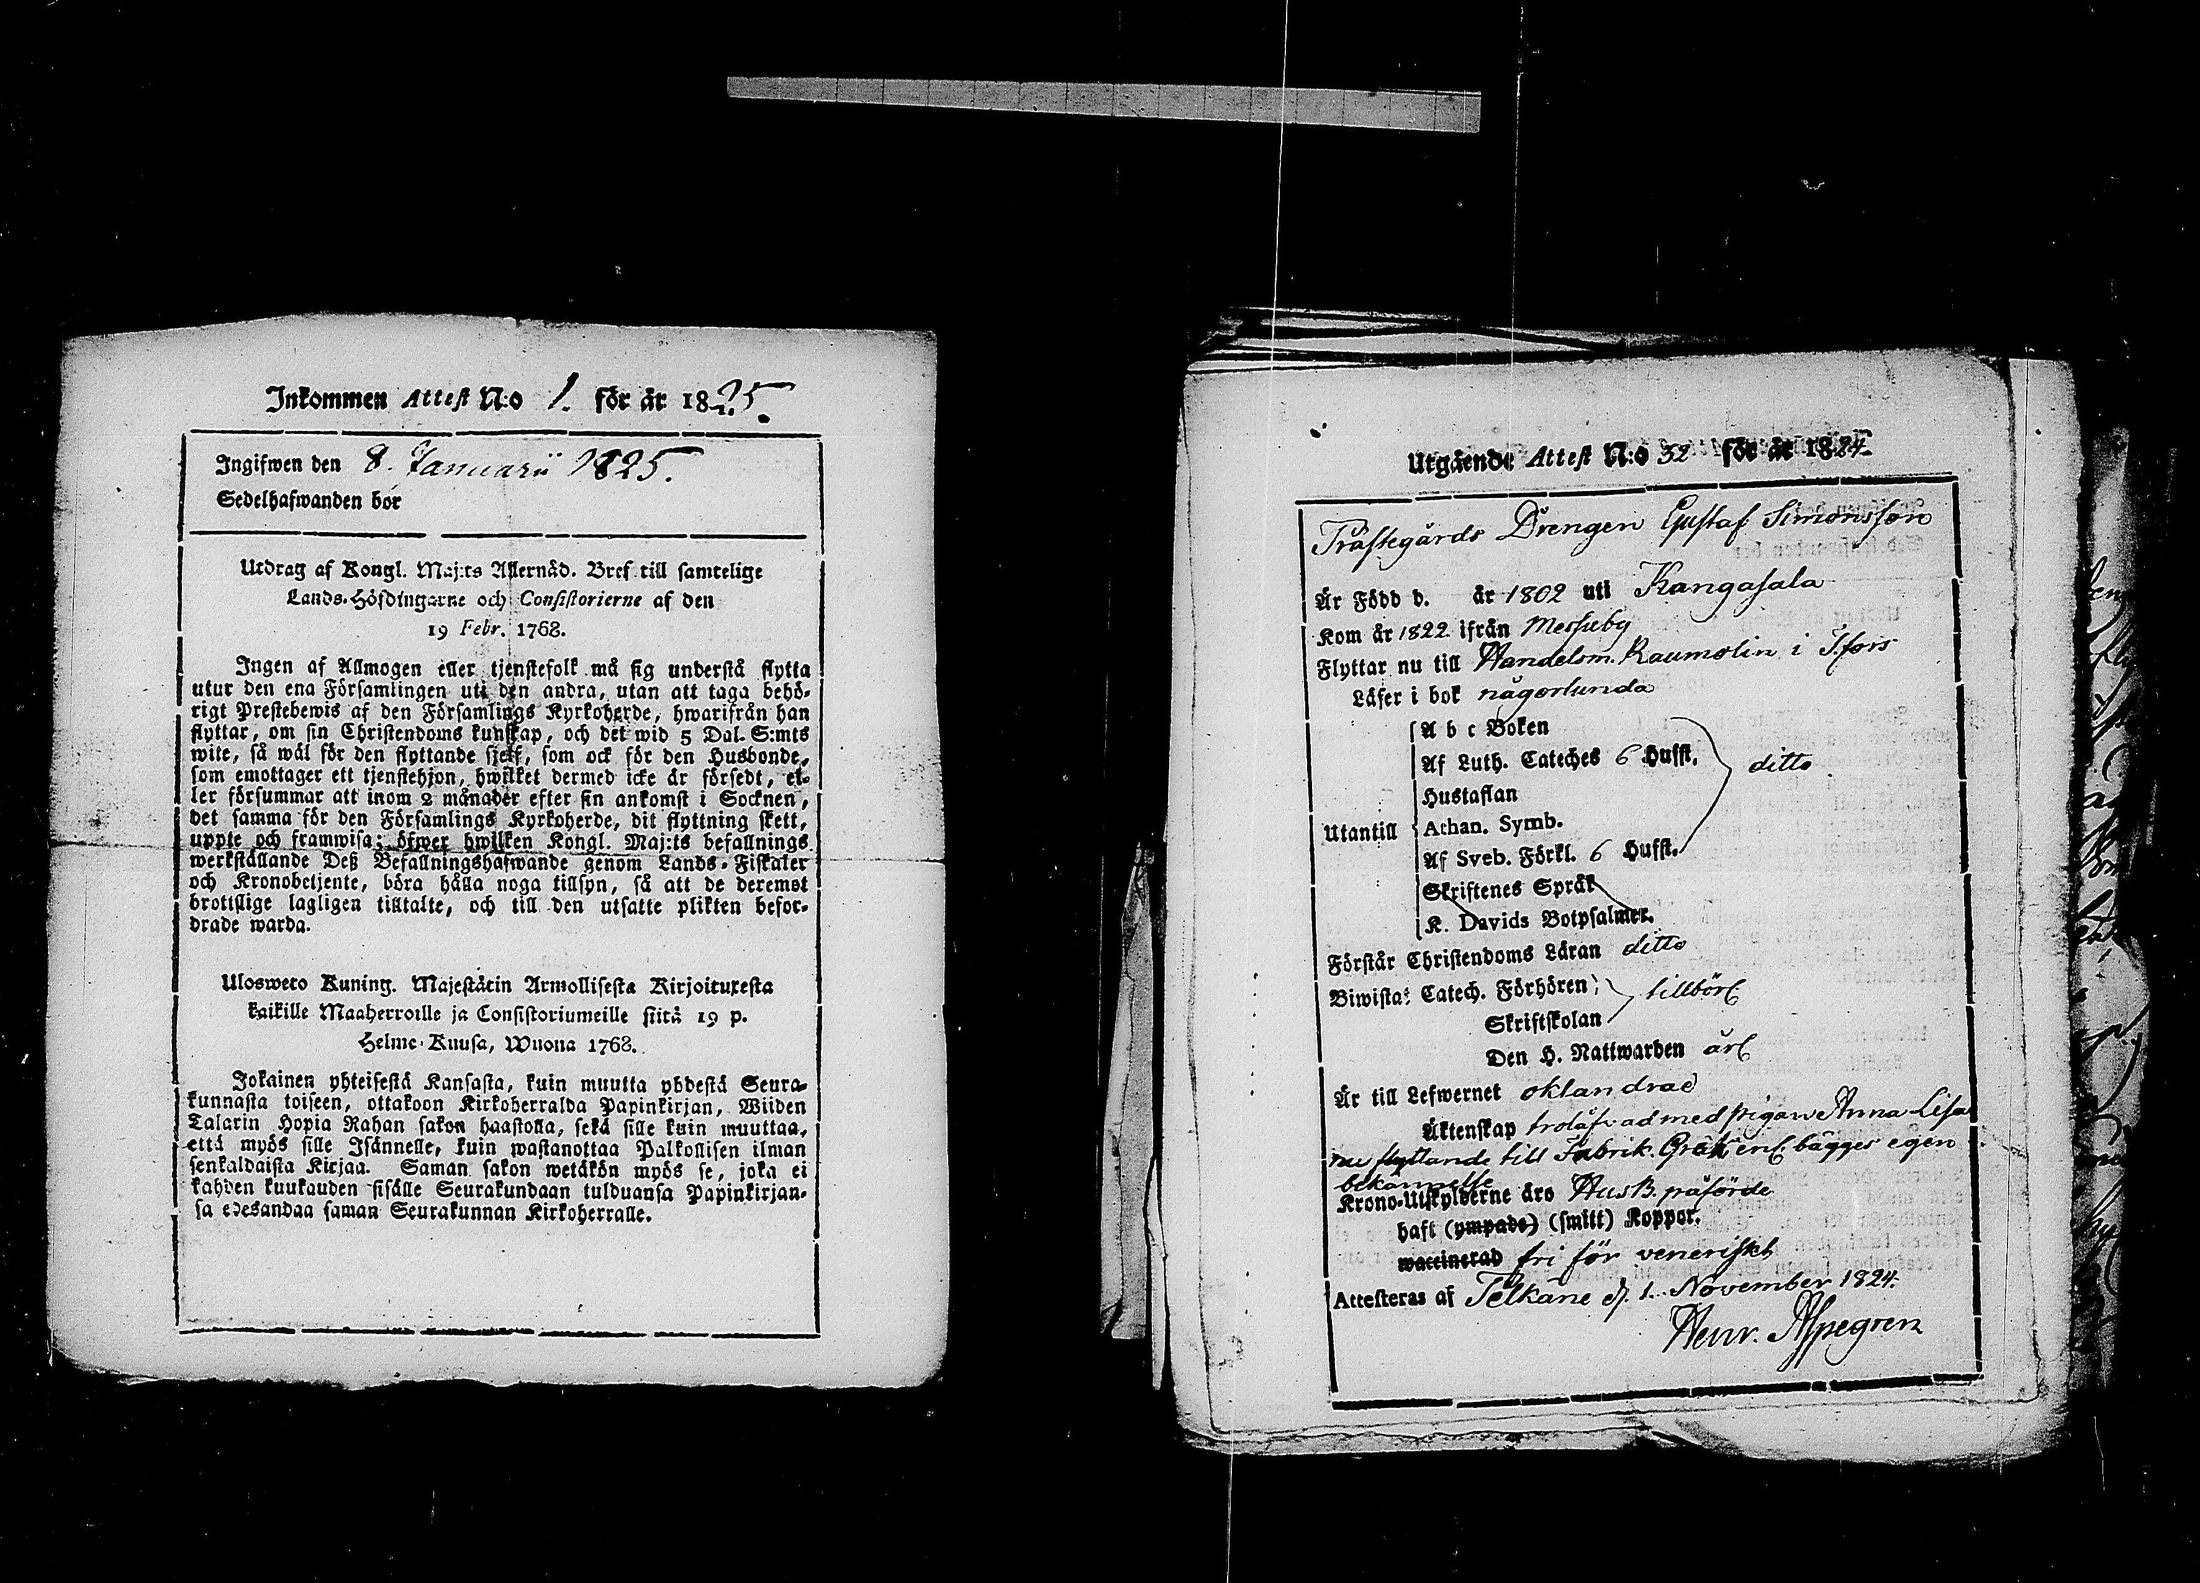 Inkommen Attest N:o 1. för år 1825.
Ingifwen den 8. Januarii 1825.
Sedelhafwanden bör
Utdrag af Kongl. Maj:ts Allernåd. Bref till samtelige
Lands-Höfdingarne och Consistorierne af den
19 Febr. 1768.
Ingen af Allmogen eller tjenstefolk må sig understå flytta
utur den ena Församlingen uti den andra, utan att taga behö-
rigt Prestebewis af den Församlings Kyrkoherde, hwarifrån han
flyttar, om sin Christendoms kunskap, och det wid 5 Dal. S:mts
wite, så wäl för den flyttande sjelf, som ock för den Husbonde,
som emottager ett tjenstehjon, hwilket dermed icke är försedt, el-
ler försummar att inom 2 månader efter sin ankomst i Socknen,
det samma för den Församlings Kyrkoherde, dit flyttning skett,
uppte och framwisa; öfwer hwilken Kongl. Maj:ts befallnings
werkställande Deß Befallningshafwande genom Lands-Fiskaler
och Kronobetjente, böra hålla noga tillsyn, så att de deremot
brottslige lagligen tilltalte, och till den utsatte plikten befor-
drade warda.
Ulosweto Kuning. Majestätin Armollisesta Kirjoituxesta
kaikille Maaherroille ja Consistoriumeille siitä 19 p.
Helme-Kuusa, Wuona 1768.
Jokainen yhteisestä Kansasta, kuin muutta yhdestä Seura-
kunnasta toiseen, ottakoon Kirkoherralda Papinkirjan, Wiiden
Talarin Hopia Rahan sakon haastolla, sekä sille kuin muuttaa,
että myös sille Isännelle, kuin wastanottaa Palkollisen ilman
senkaldaista Kirjaa. Saman sakon wetäkön myös se, joka ei
kahden kuukauden sisälle Seurakundaan tulduansa Papinkirjan-
sa edesandaa saman Seurakunnan Kirkoherralle.
Utgående Attest N:o 32 för år 1824.
Prästegårds Drengen Gustaf Simonsson
Är Född d. år 1802 uti Kangasala
Kom år 1822 ifrån Messuby
Flyttar nu till Handelsm. Raumolin i T.fors
Läser i bok någorlunda
A b c Boken
Af Luth. Cateches 6 Hufst. ditto
Hustaflan
Utantill Athan. Symb.
Af Sveb. Förkl. 6 Hufst.
Skriftenes Språk
K. Davids Botpsalmer.
Förstår Christendoms Läran ditto
Biwistat Catech. Förhören tillbörl
Skriftskolan
Den H. Nattwarden ärl
Är till Lefwernet oklandrad
Äktenskap trolåfvad med pigan Anna Lisa
nu flyttande till Fabrik. enl. bägges egen
bekännelse
Krono-Utskylderne äro HusB. påförde
haft (ympade) (smitt) Koppor.
waccinerad fri för veneriskt
Attesteras af Pelkäne d. 1. November 1824.
Henr. Aspegren